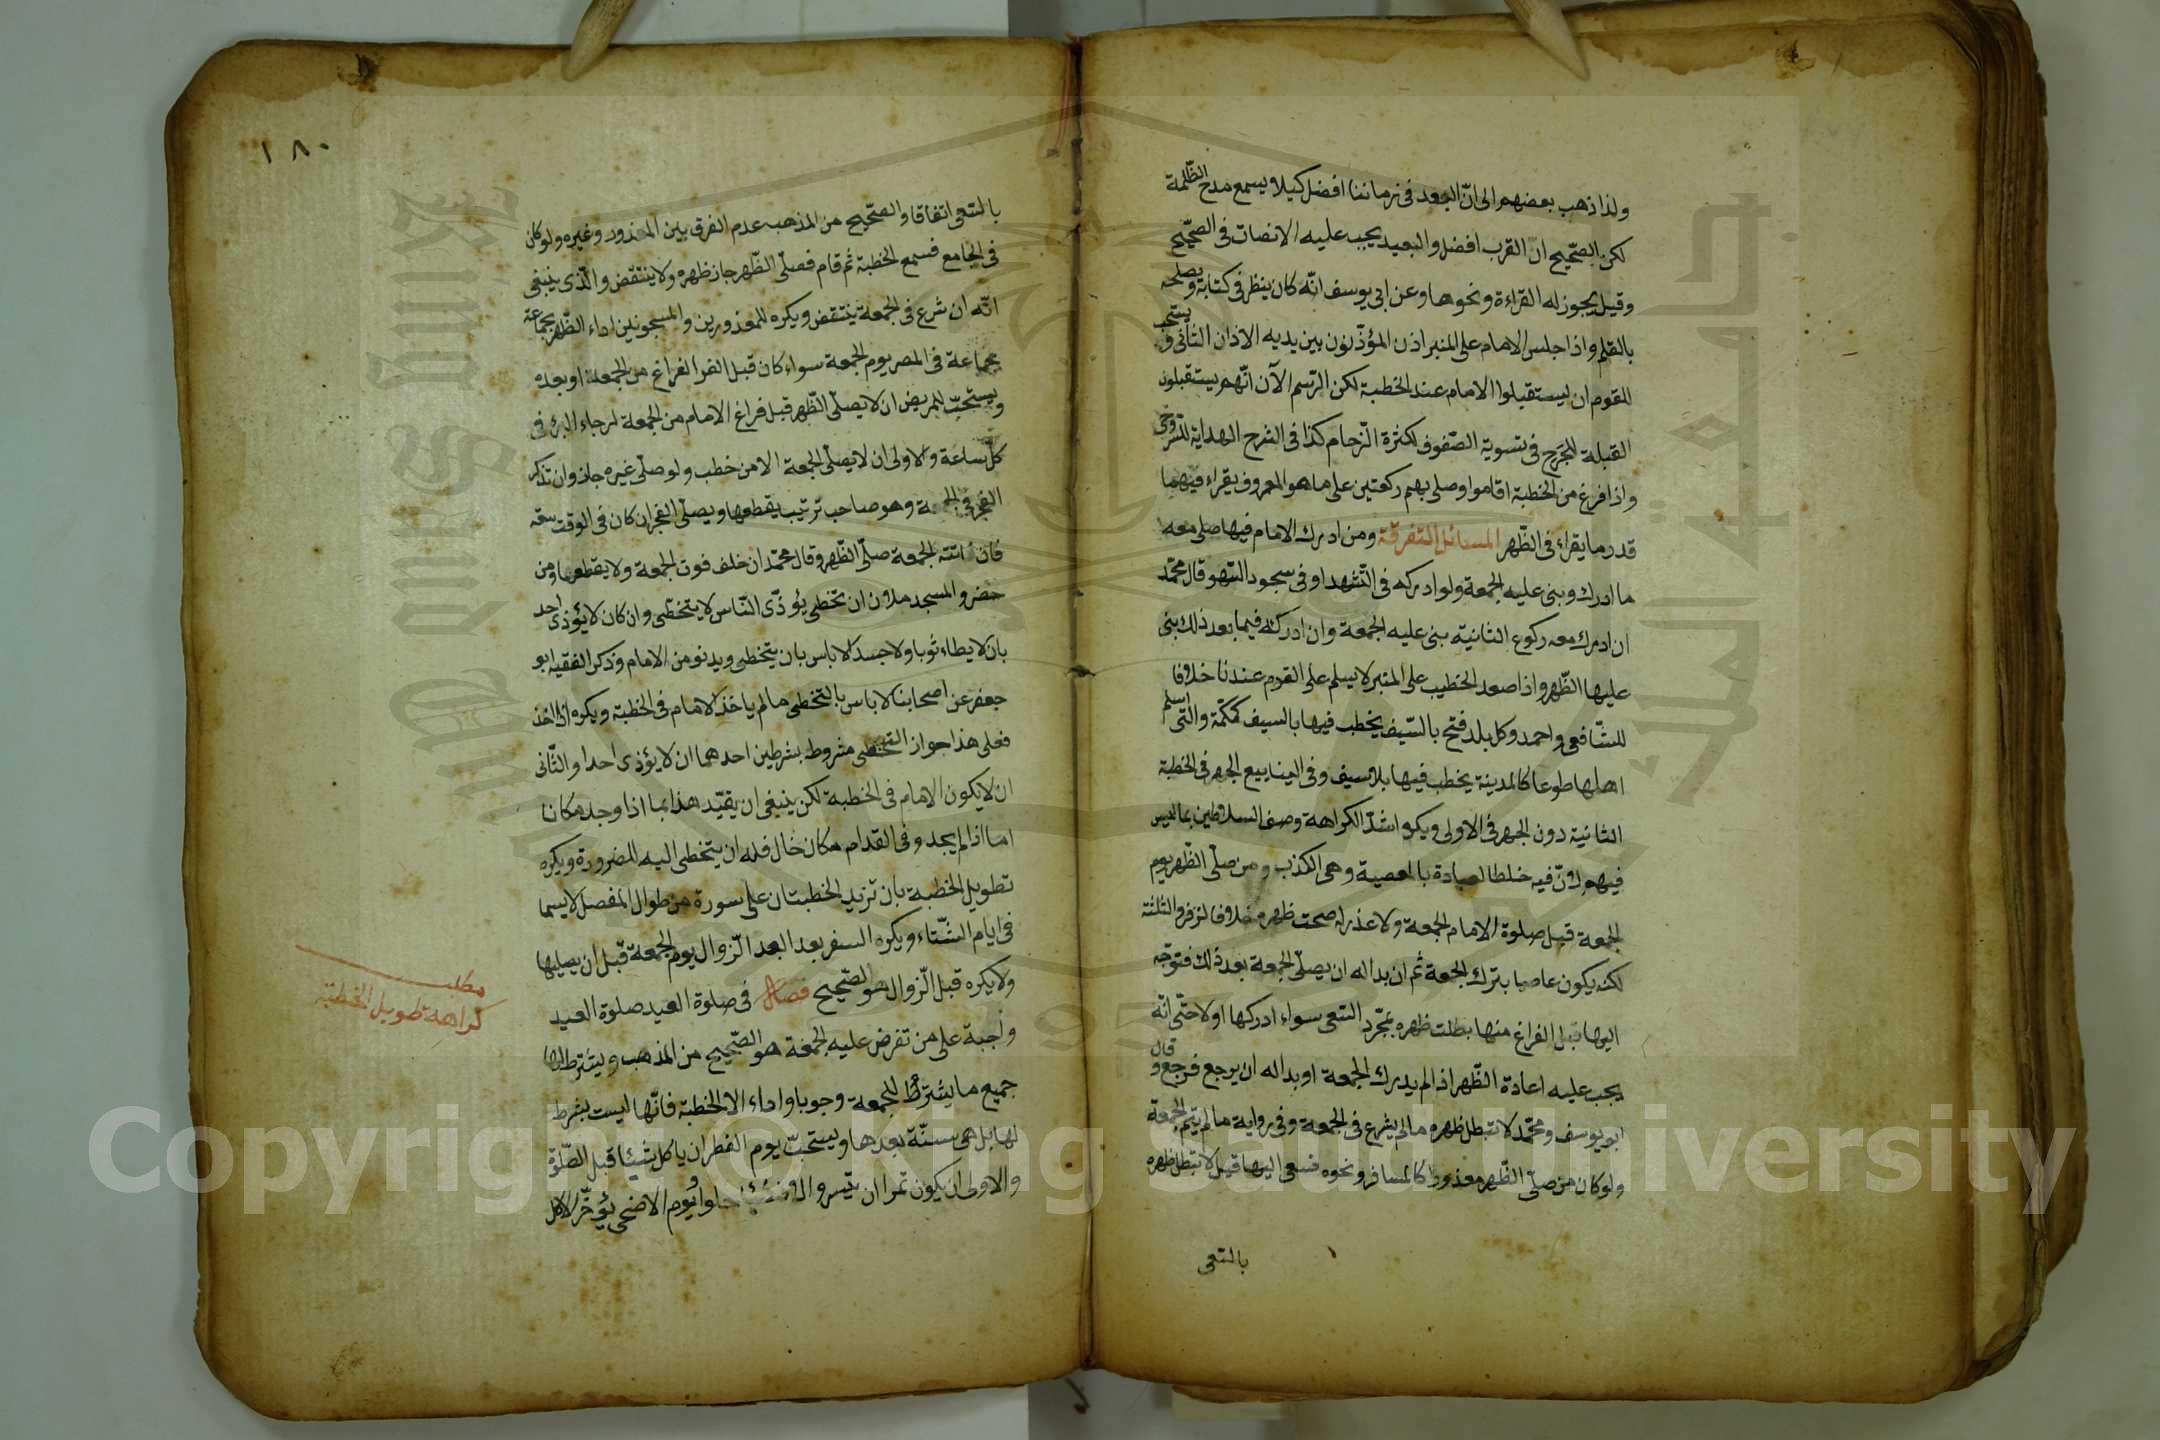 ولذا ذهب بعضهم الى انّ البعد فى زماننا افضل كيلا يسمع مدح الظّلمة
لكن الصّحيح انّ القرب افضل والبعيد يجب عليه الانصات فى الصّحيح
وقيل يجوز له القراءة ونحوها وعن ابى يوسف انّه كان ينظر فى كتابة ويصلحه
بالقلم واذا جلس الامام على المنبر اذن المؤذّنون بين يديه الاذان الثانى ويستحب
للقوم ان يستقبلوا الامام عند الخطبة لكن الرّسم الآن انّهم يستقبلون
القبلة للحَرَج فى تسوية الصّفوف لكثرة الزّحام كذا فى الشرح الهداية للسّروجى
واذا فرغ من الخطبة اقاموا وصلى بهم ركعتين على ما هو المعروف يقراء فيهما
قدر ما يقراء فى الظّهر المسائل المتفرقة ومن ادرك الامام فيها صلى معه
ما ادرك وبنى عليه الجمعة ولو ادركه فى التّشهد او فى سجود السّهو قال محمّد
ان ادرك معه ركوع الثانية بنى عليه الجمعة وان ادركه فيما بعد ذلك بنى
عليها الظّهر واذا صعد الخطيب على المنبر لا يسلم على القوم عندنا خلافا
للشّافعى واحمد وكل بلد فتح بالسّيف يخطب فيها بالسيف كمكّة والتى اسلم
اهلها طوعا كالمدينة يخطب فيها بلا سيف وفى الينابيع الجهر فى الخطبة
الثانية دون الجهر فى الاولى ويكره اشدّ الكراهة وصف السلاطين بما ليس
فيهم لانّ فيه خلط العبادة بالمعصية وهى الكذب ومن صلّى الظّهر يوم
الجمعة قبل صلوة الامام الجمعة ولا عذر له صحت ظهره خلافا لزفر والثلثة
لكنه يكون عاصيا بترك الجمعة ثم ان بدا له ان يصلّى الجمعة بعد ذلك فتوجّه
اليها قبل الفراغ منها بطلت ظهره بمجّرد السّعى سواء ادركها او لا حتّى انّه
يجب عليه اعادة الظّهر اذا لم يدرك الجمعة او بدا له ان يرجع فرجع وقال
ابو يوسف ومحمّد لا تبطل ظهره ما لم يشرع فى الجمعة وفى رواية ما لم يتم الجمعة
ولو كان من صلّى الظّهر معذورا كالمسافر ونحوه فسعى اليها قيل لا تبطل ظهره
بالسّعى
١٨٠
بالسّعى اتفاقا والصّحيح من المذهب عدم الفرق بين المعذور وغيره ولو كان
فى الجامع فسمع الخطبة ثم قام فصلّى الظّهر جاز ظهره ولا ينتقض والّذى ينبغى
انّه ان شرع فى الجمعة ينتقض ويكره للمعذورين والمسجونين اداء الظّهر بجماعة
بجماعة فى المصر يوم الجمعة سواء كان قبل الفراغ من الجمعة او بعده
ويستحبّ للمريض ان لا يصلّى الظّهر قبل فراغ الامام من الجمعة لرجاء البرء فى
كلّ ساعة والاولى ان لا يصلّى الجمعة الا من خطب ولو صلّى غيره جاز وان تذكر
الفجر فى الجمعة وهو صاحب ترتيب يقطعها ويصلّى الفجر ان كان فى الوقت سعة
فان فاتته الجمعة صلّى الظّهر وقال محمّد ان خاف فوت الجمعة ولا يقطعها ومن
حضر والمسجد ملآن ان تخطى يؤذّى النّاس لا يتخطّى وان كان لا يؤذى احد
بان لا يطاء ثوبا ولا جسدا لا باس بان يتخطى ويدنو من الامام وذكر الفقيه ابو
جعفر عن اصحابنا لا باس بالتخطى ما لم ياخذ الامام فى الخطبة ويكره اذا اخذ
فعلى هذا جواز التخطى مشروط بشرطين احدهما ان لا يؤذى احدا والثّانى
ان لا يكون الامام فى الخطبة لكن ينبغى ان يقيّد هذا بما اذا وجد مكانا
اما اذا لم يجد وفى القدام مكان خال فله ان يتخطى اليه للضرورة ويكره
تطويل الخطبة بان تزيد الخطبتان على سورة من طوال المفصل لا سيما
فى ايام الشّتاء ويكره السفر بعد الزّوال يوم الجمعة قبل ان يصليها
ولا يكره قبل الزّوال هو الصّحيح فصل فى صلوة العيد صلوة العيد
واجبة على من تفرض عليه الجمعة هو الصّحيح من المذهب ويشترط لها
جميع ما يشترط للجمعة وجوبا واداء الا الخطبة فانّها ليست بشرط
لها بل هى سنّة بعدها ويستحبّ يوم الفطر ان ياكل شيئا قبل الصّلوة
والاولى ان يكون تمرا ان تيسر والا فشيئا حلوا ويوم الاضحى يؤخّر الاكل
مطلب
كراهة تطويل الخطبة
Copyright © King Saud University